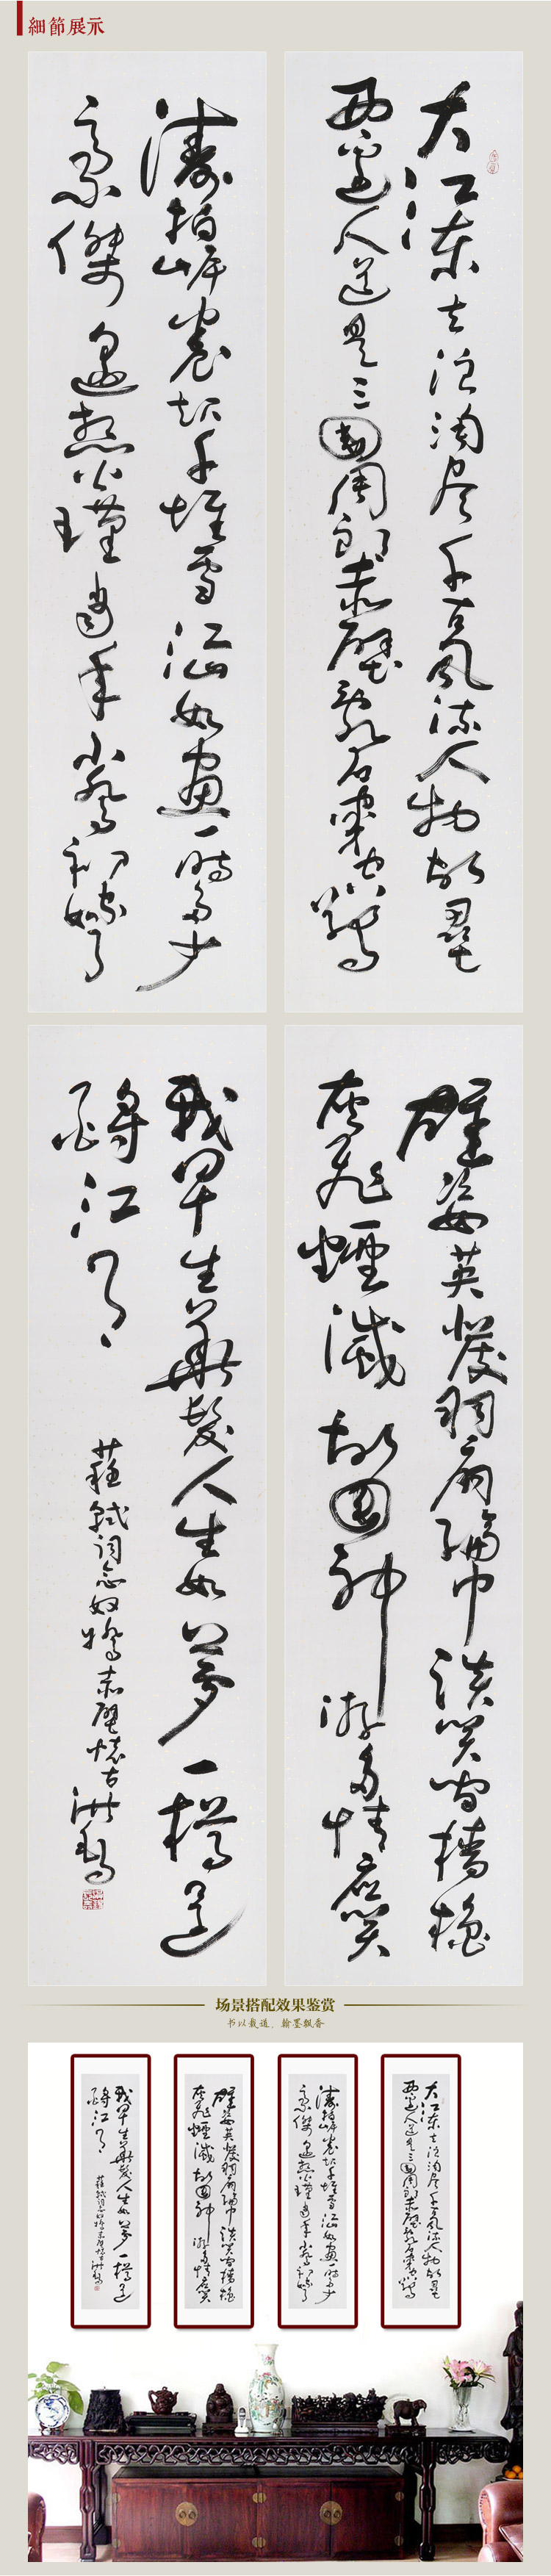 細節展示
大江東去浪淘尽千古風流人物故壘
西邊人道是三國周郎赤壁亂石穿空驚
濤拍岸卷起千堆雪江山如畫一時多少
豪傑遥想公瑾當年小喬初嫁了
雄姿英發羽扇綸巾談笑間檣櫓
灰飛煙滅故國神游多情應笑
我早生華髮人生如夢一樽還
酹江月
蘇軾詞念奴嬌赤壁懷古
场景搭配效果鉴赏
书以载道，翰墨飘香